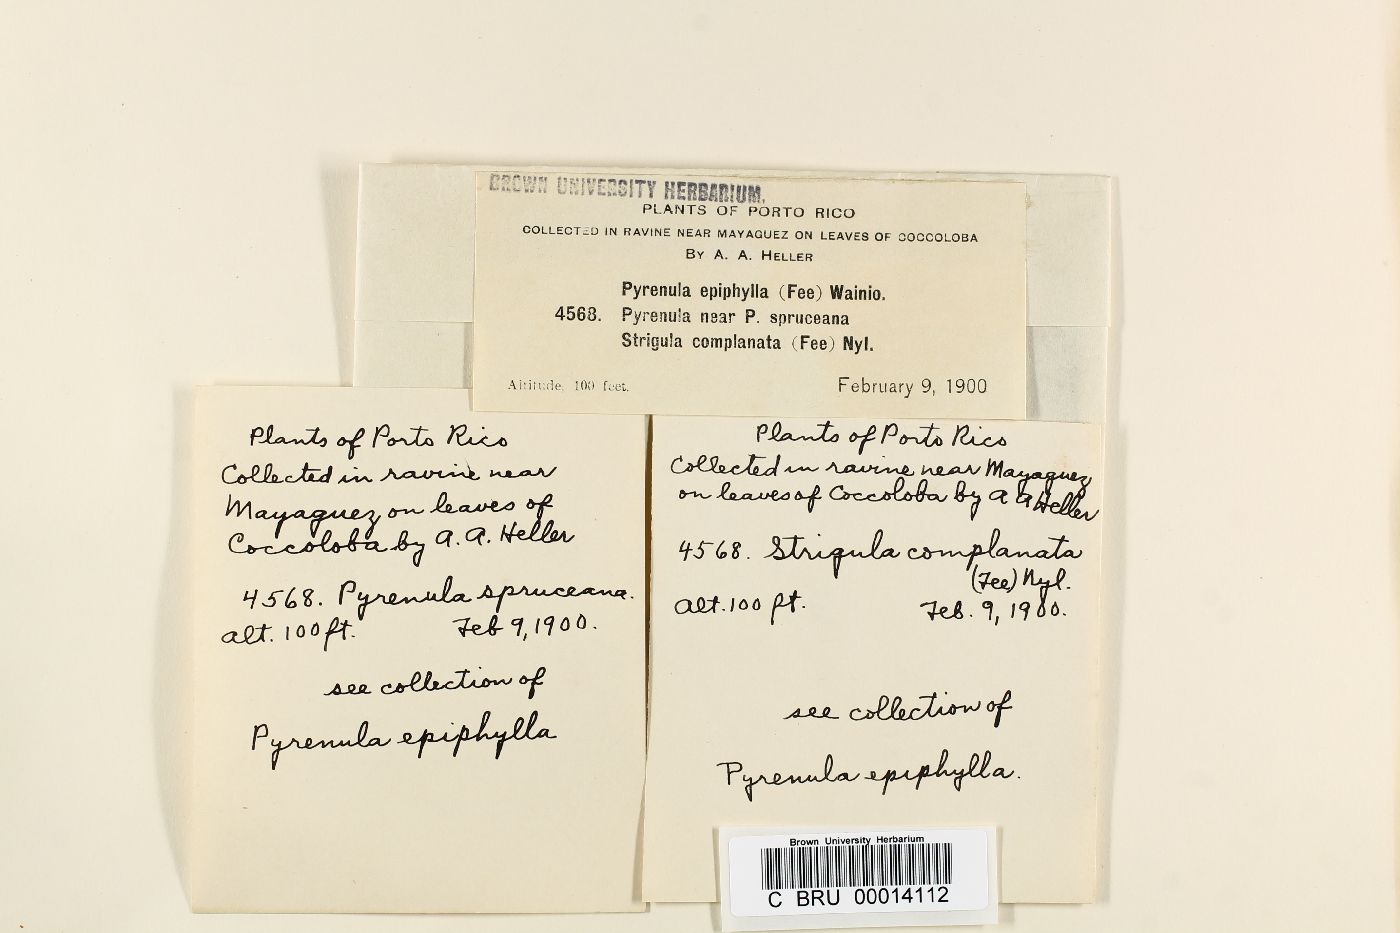 BROWN UNIVERSITY HERBARIUM.
PLANTS OF PORTO RICO
COLLECTED IN RAVINE NEAR MAYAGUEZ ON LEAVES OF COCCOLOBA
BY A. A. HELLER
Pyrenula epiphylla (Fee) Wainio.
4568. Pyrenula near P. spruceana
Strigula complanata (Fee) Nyl.
Altitude, 100 feet.
February 9, 1900
Plants of Porto Rico
Collected in ravine near
Mayaguez on leaves of
Coccoloba by A. A. Heller
4568. Pyrenula spruceana.
alt. 100 ft. Feb 9, 1900.
see collection of
Pyrenula epiphylla
Plants of Porto Rico
Collected in ravine near Mayaguez
on leaves of Coccoloba by A A Heller
4568. Strigula complanata
(Fee) Nyl.
alt. 100 ft. Feb. 9, 1900.
see collection of
Pyrenula epiphylla.
Brown University Herbarium
C BRU 00014112